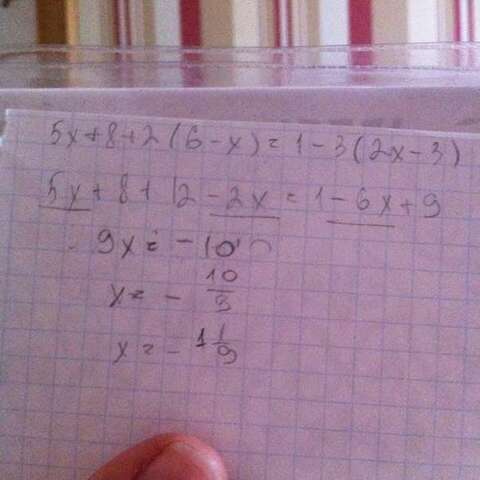 5x+8+2(6-x)=1-3(2x-3)
5x+8+12-2x=1-6x+9
9x=-10
x=-10/9
x=-1 1/9